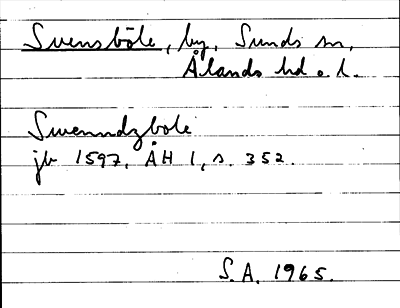 Svensböle, by, Sunds sn,
Ålands hd o. l.
Swenndzbole
jb 1597, ÅH 1, s. 352.
S.A. 1965.